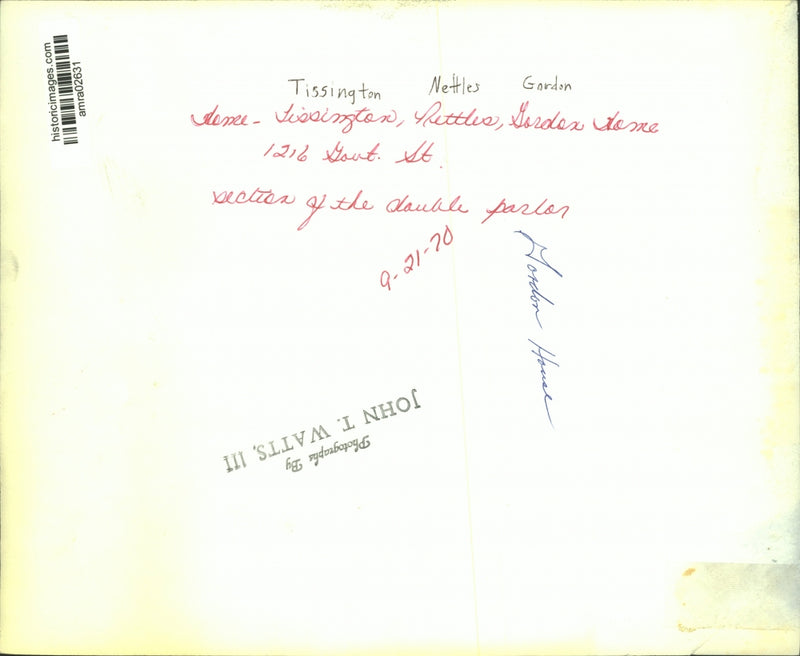 historicimages.com
amra02631
Tissington Nettles Gordon
Home - Tissington, Nettles, Gordon Home
1216 Govt. St.
section of the double parlor
9-21-70
Gordon House
Photographs By
JOHN T. WATTS, III